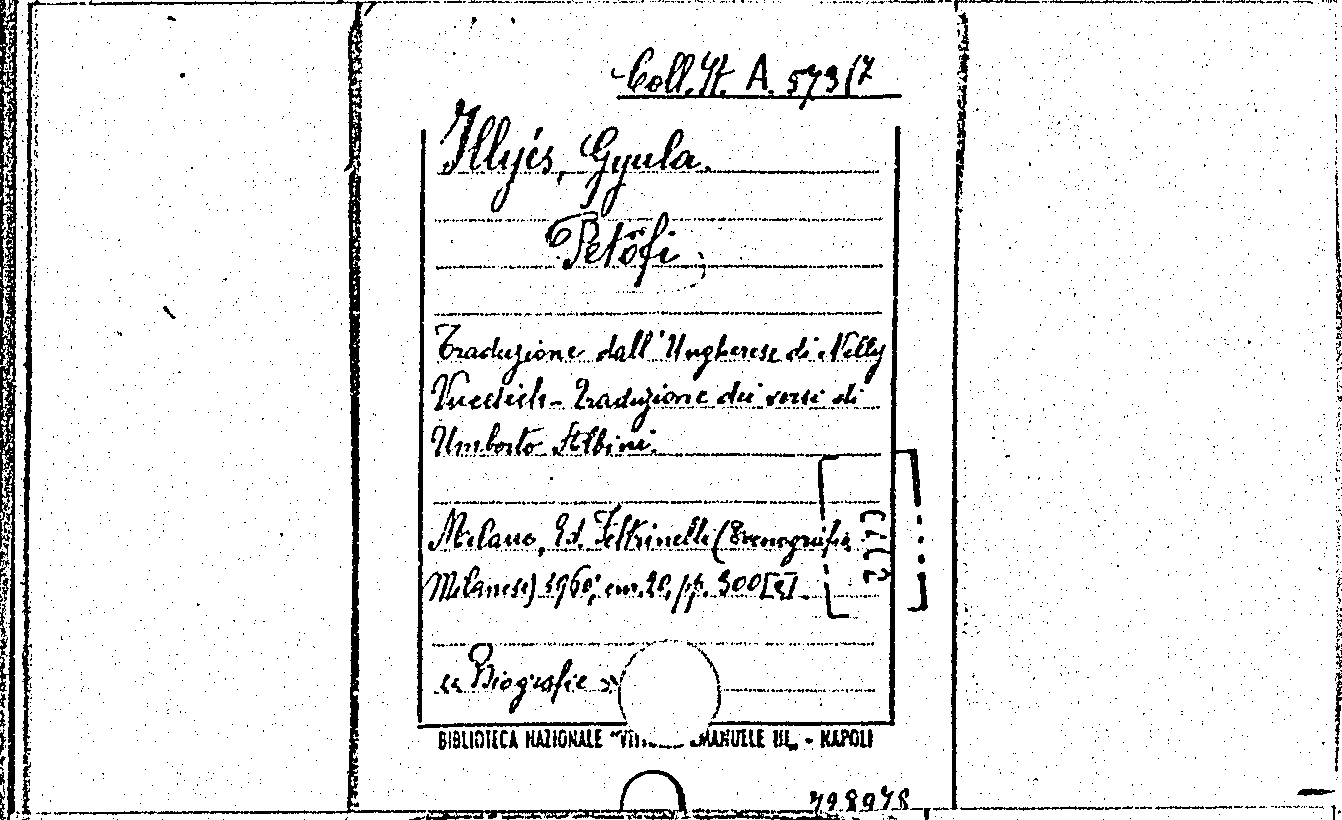 Coll. It. A. 573/7
Illyés, Gyula.
Petőfi.
Traduzione dall'Ungherese di Nelly
Vucetich - Traduzione dei versi di
Umberto Albini.
Milano, Ed. Feltrinelli (Stenografia
Milanese) 1960; cm. 20, pp. 500
« Biografie »
BIBLIOTECA NAZIONALE "VITT EMANUELE III„ - NAPOLI
798978